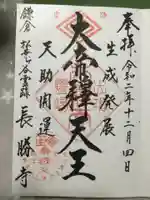 奉拝 令和二年十二月四日
生成発展
大帝釋天王
天助開運
鎌倉 松葉ヶ谷霊跡 長勝寺